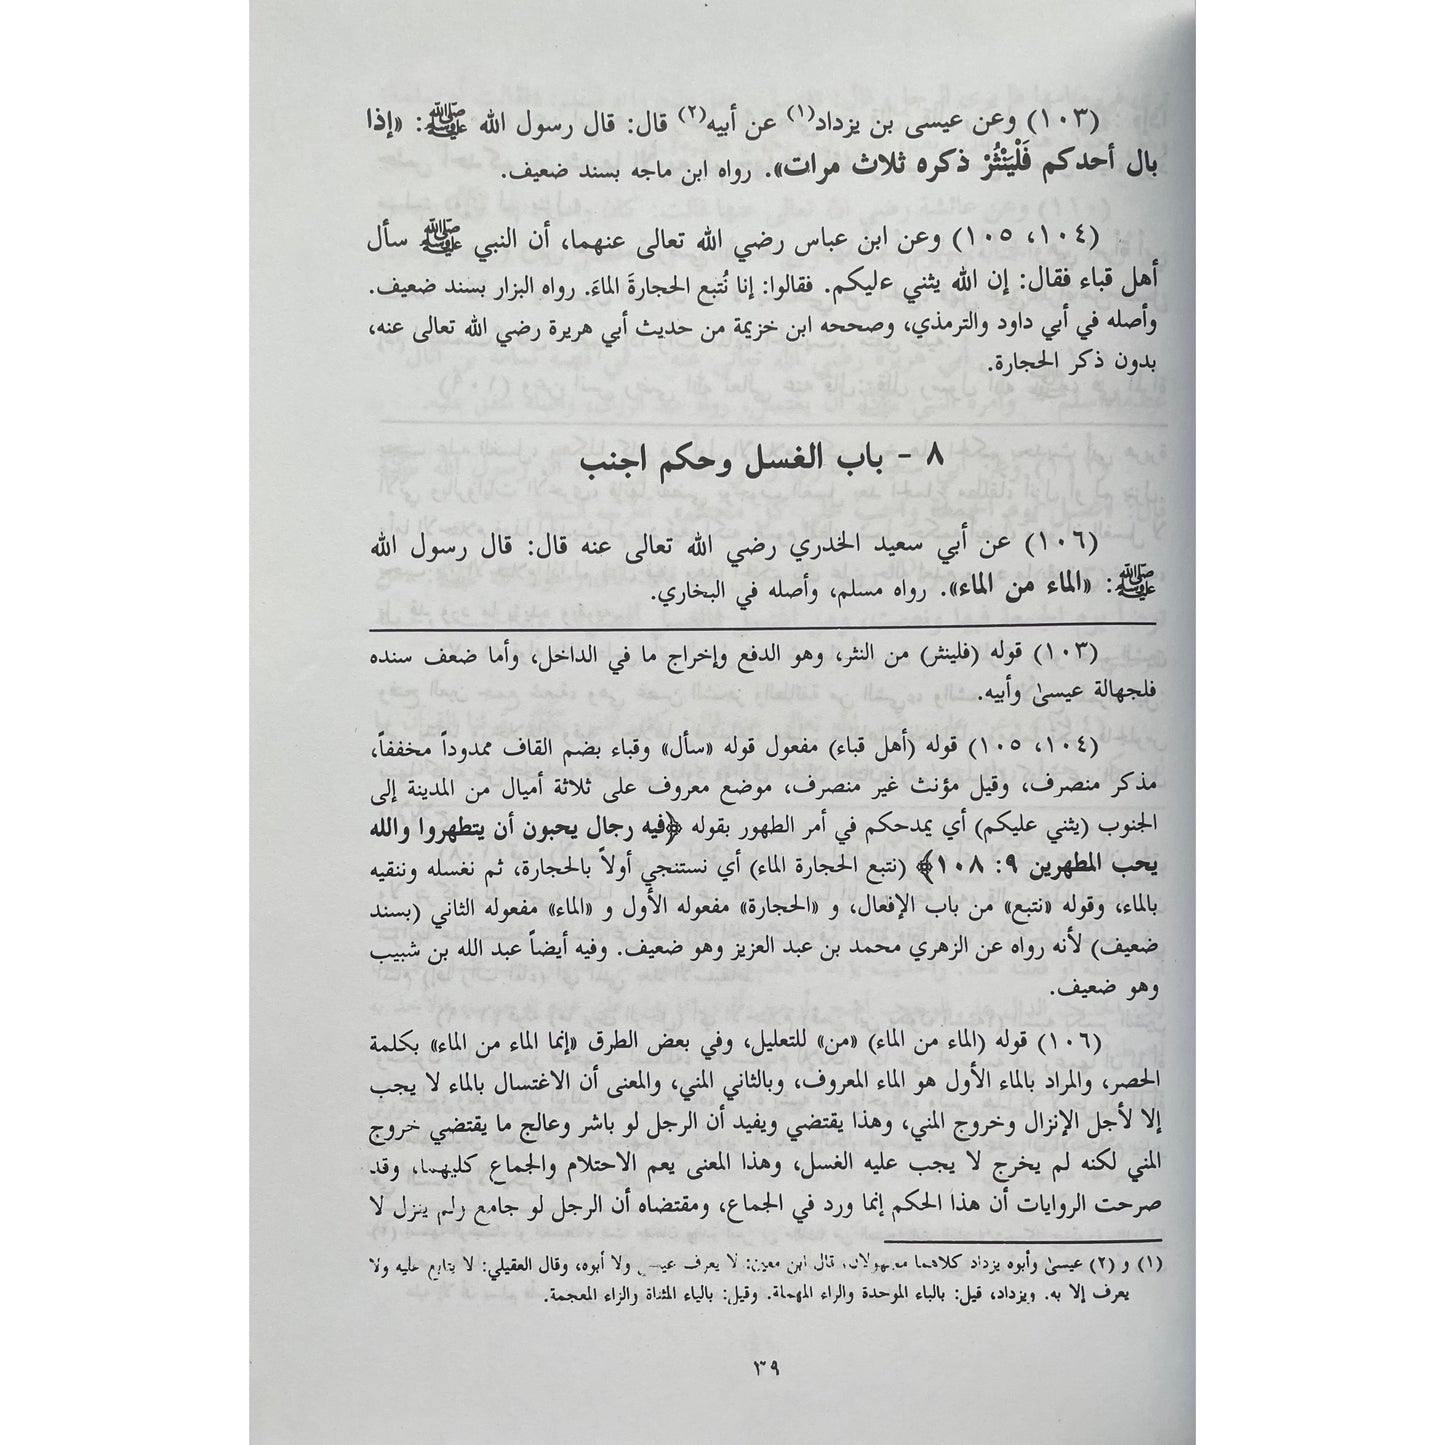 (١٠٣) وعن عيسى بن يزداد(١) عن أبيه(٢) قال: قال رسول الله ﷺ: «إذا
بال أحدكم فَلْيَنْثُرْ ذكره ثلاث مرات». رواه ابن ماجه بسند ضعيف.
(١٠٤، ١٠٥) وعن ابن عباس رضي الله تعالى عنهما، أن النبي ﷺ سأل
أهل قباء فقال: إن الله يثني عليكم. فقالوا: إنا نُتبع الحجارةَ الماءَ. رواه البزار بسند ضعيف.
وأصله في أبي داود والترمذي، وصححه ابن خزيمة من حديث أبي هريرة رضي الله تعالى عنه،
بدون ذكر الحجارة.
٨ - باب الغسل وحكم اجنب
(١٠٦) عن أبي سعيد الخدري رضي الله تعالى عنه قال: قال رسول الله
ﷺ: «الماء من الماء». رواه مسلم، وأصله في البخاري.
(١٠٣) قوله (فلينثر) من النثر، وهو الدفع وإخراج ما في الداخل، وأما ضعف سنده
فلجهالة عيسىٰ وأبيه.
(١٠٤، ١٠٥) قوله (أهل قباء) مفعول قوله «سأل» وقباء بضم القاف ممدوداً مخففاً،
مذكر منصرف، وقيل مؤنث غير منصرف، موضع معروف على ثلاثة أميال من المدينة إلى
الجنوب (يثني عليكم) أي يمدحكم في أمر الطهور بقوله ﴿فيه رجال يحبون أن يتطهروا والله
يحب المطهرين ٩: ١٠٨﴾ (نتبع الحجارة الماء) أي نستنجي أولاً بالحجارة، ثم نغسله وننقيه
بالماء، وقوله «نتبع» من باب الإفعال، و «الحجارة» مفعوله الأول و «الماء» مفعوله الثاني (بسند
ضعيف) لأنه رواه عن الزهري محمد بن عبد العزيز وهو ضعيف. وفيه أيضاً عبد الله بن شبيب
وهو ضعيف.
(١٠٦) قوله (الماء من الماء) «من» للتعليل، وفي بعض الطرق «إنما الماء من الماء» بكلمة
الحصر، والمراد بالماء الأول هو الماء المعروف، وبالثاني المني، والمعنى أن الاغتسال بالماء لا يجب
إلا لأجل الإنزال وخروج المني، وهذا يقتضي ويفيد أن الرجل لو باشر وعالج ما يقتضي خروج
المني لكنه لم يخرج لا يجب عليه الغسل، وهذا المعنى يعم الاحتلام والجماع كليهما، وقد
صرحت الروايات أن هذا الحكم إنما ورد في الجماع، ومقتضاه أن الرجل لو جامع ولم ينزل لا
(١) و (٢) عيسىٰ وأبوه يزداد كلاهما مجهولان، قال ابن معين: لا يعرف عيسى ولا أبوه، وقال العقيلي: لا يتابع عليه ولا
يعرف إلا به. ويزداد، قيل: بالباء الموحدة والراء المهملة. وقيل: بالياء المثناة والزاء المعجمة.
٣٩